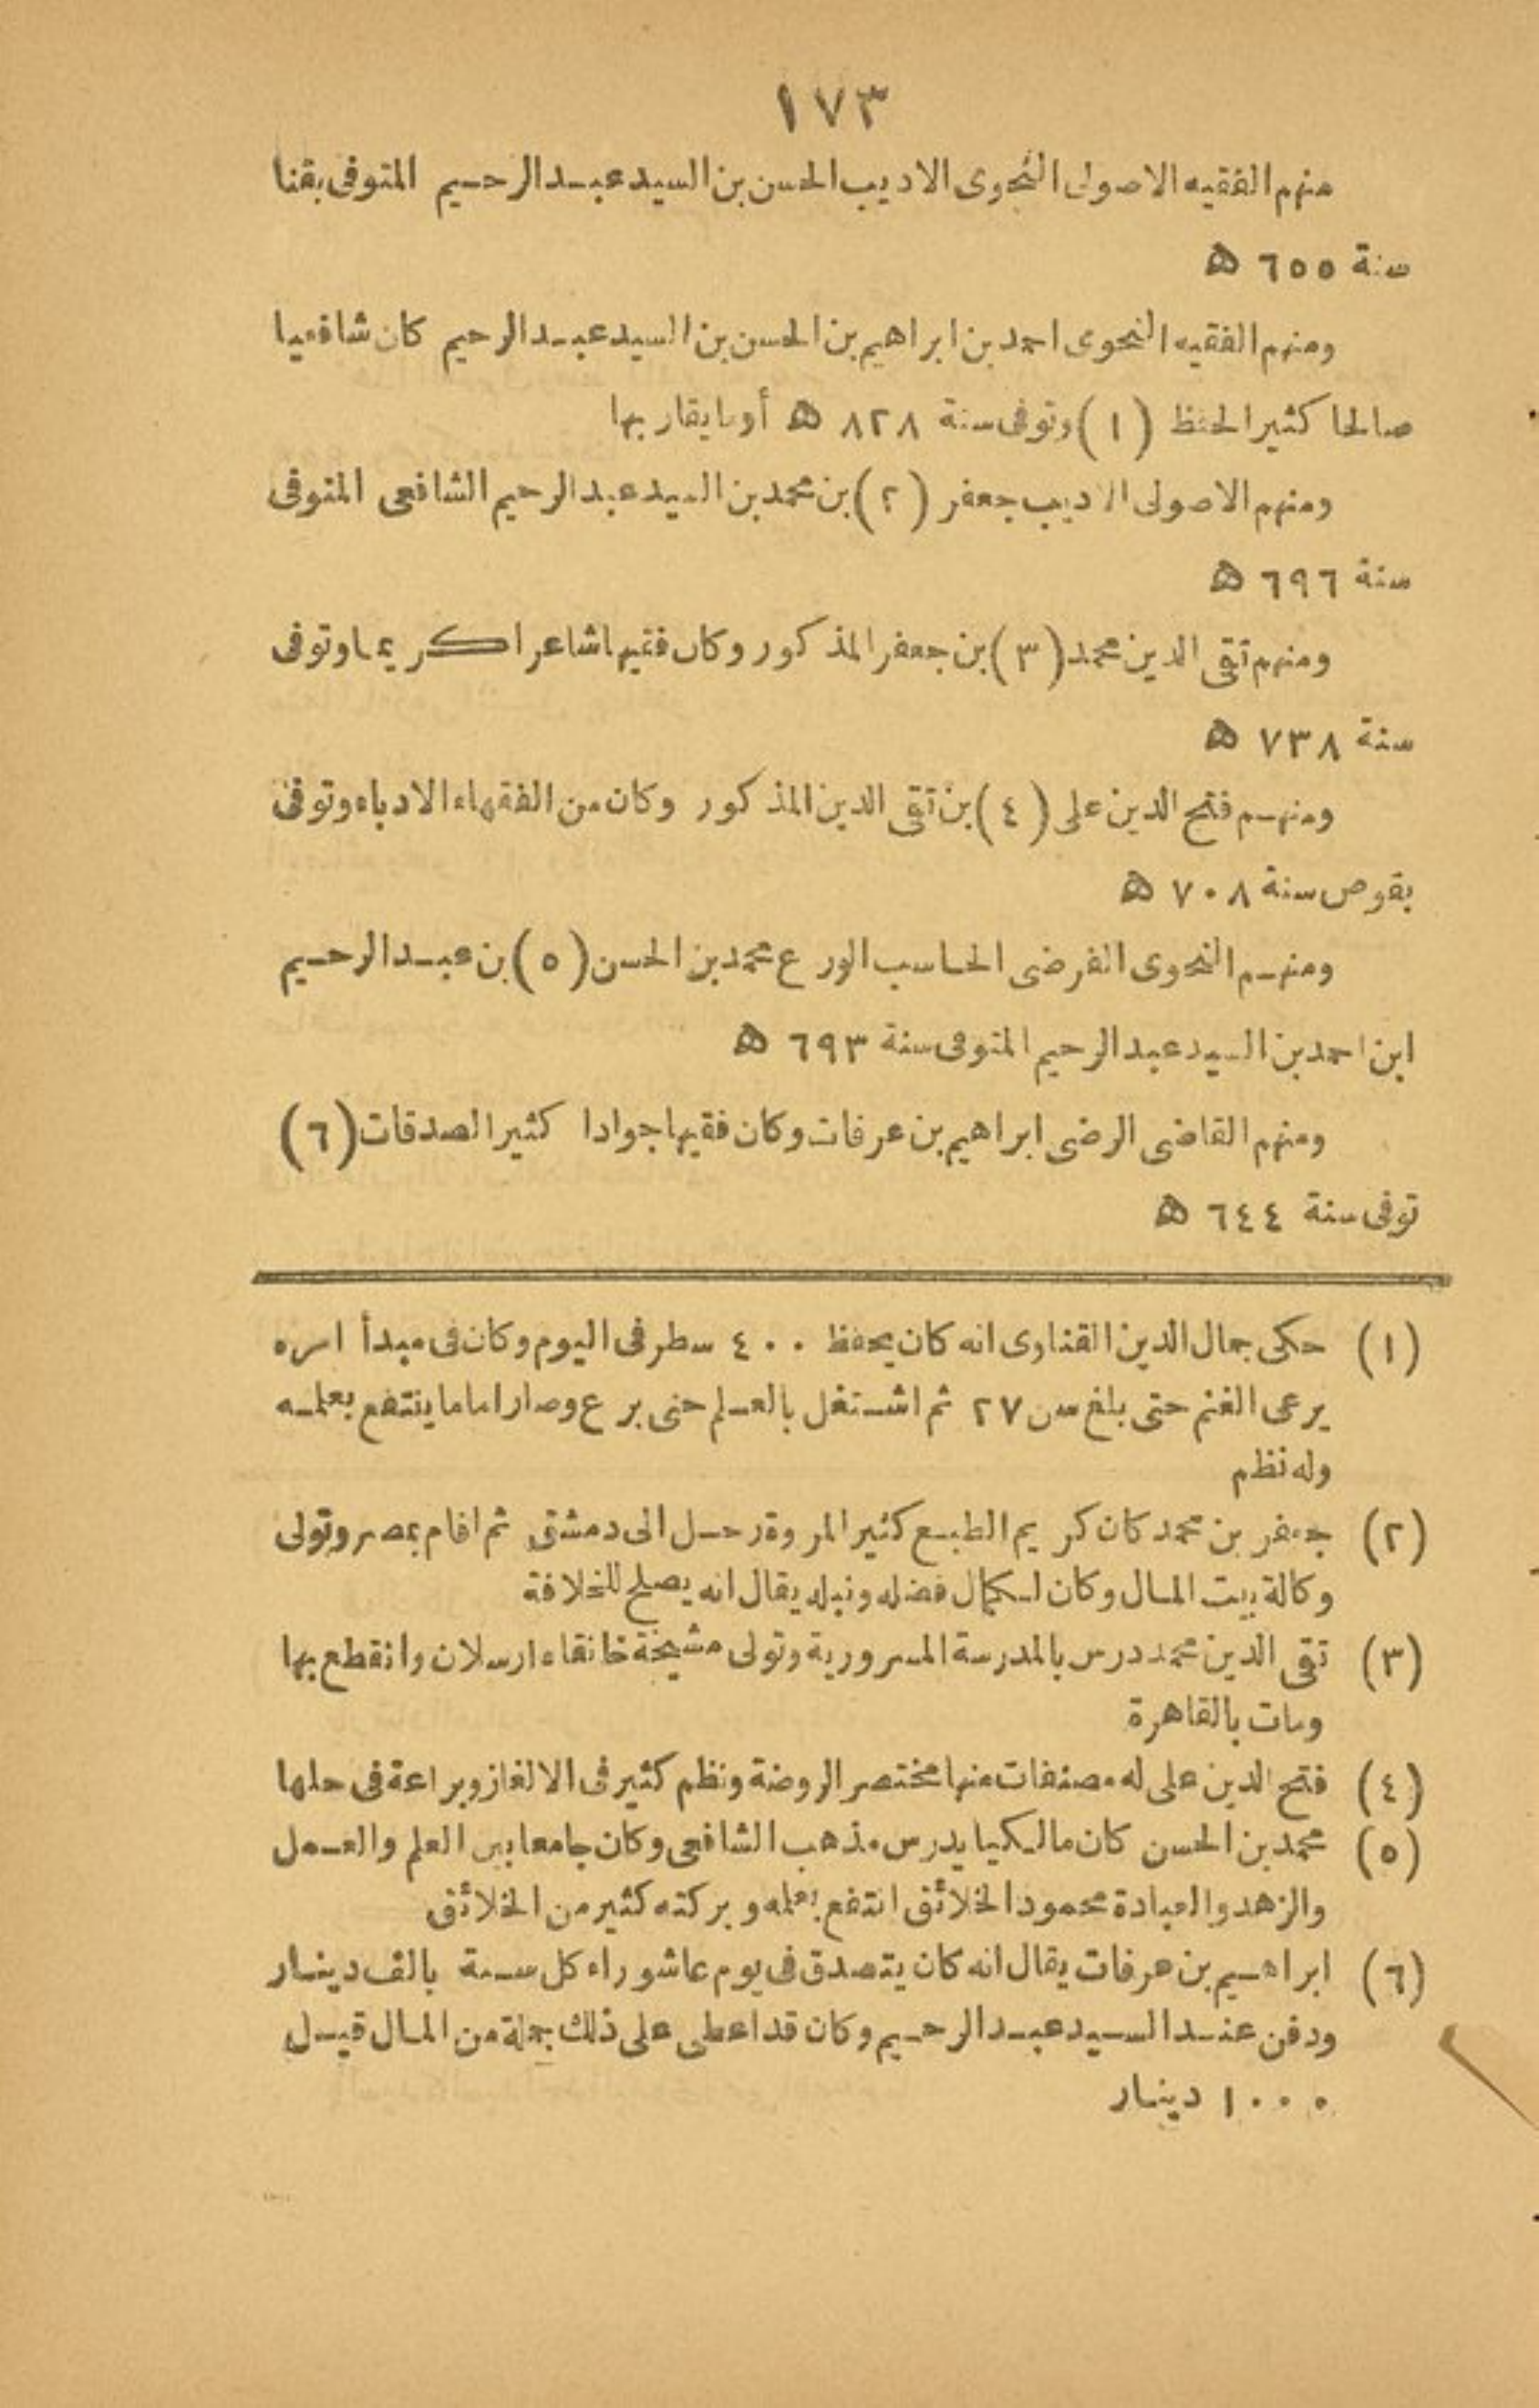 ١٧٣
منهم الفقيه الاصولى النحوى الاديب الحسن بن السيد عبد الرحيم المتوفى بقنا
سنة ٦٥٥ ه
ومنهم الفقيه النحوى احمد بن ابراهيم بن الحسن بن السيد عبد الرحيم كان شافعيا
صالحا كثير الحفظ (١) وتوفى سنة ٨٢٨ ه أو ما يقار بها
ومنهم الاصولى الاديب جعفر (٢) بن محمد بن السيد عبد الرحيم الشافعى المتوفى
سنة ٦٩٦ ه
ومنهم تقى الدين محمد (٣) بن جعفر المذكور وكان فقيها شاعرا كريما وتوفى
سنة ٧٣٨ ه
ومنهم فتح الدين على (٤) بن تقى الدين المذكور وكان من الفقهاء الادباء وتوفى
بقوص سنة ٧٠٨ ه
ومنهم النحوى الفرضى الحاسب الورع محمد بن الحسن (٥) بن عبد الرحيم
ابن احمد بن السيد عبد الرحيم المتوفى سنة ٦٩٣ ه
ومنهم القاضى الرضى ابراهيم بن عرفات وكان فقيها جوادا كثير الصدقات (٦)
توفى سنة ٦٤٤ ه
(١) حكى جمال الدين القناوى انه كان يحفظ ٤٠٠ سطر فى اليوم وكان فى مبدأ امره
يرعى الغنم حتى بلغ سن ٢٧ ثم اشتغل بالعلم حتى برع وصار اماما ينتفع بعلمه
وله نظم
(٢) جعفر بن محمد كان كريم الطبع كثير المروة رحل الى دمشق ثم اقام بمصر وتولى
وكالة بيت المال وكان لكمال فضله ونبله يقال انه يصلح للخلافة
(٣) تقى الدين محمد درس بالمدرسة المسرورية وتولى مشيخة خانقاء ارسلان وانقطع بها
ومات بالقاهرة
(٤) فتح الدين على له مصنفات منها مختصر الروضة ونظم كثير فى الالغاز وبراعة فى حلها
(٥) محمد بن الحسن كان مالكيا يدرس مذهب الشافعى وكان جامعا بين العلم والعمل
والزهد والعبادة محمود الخلائق انتفع بعلمه وبركته كثير من الخلائق
(٦) ابراهيم بن عرفات يقال انه كان يتصدق فى يوم عاشوراء كل سنة بالف دينار
ودفن عند السيد عبد الرحيم وكان قد اعطى على ذلك جملة من المال قيل
١٠٠٠ دينار